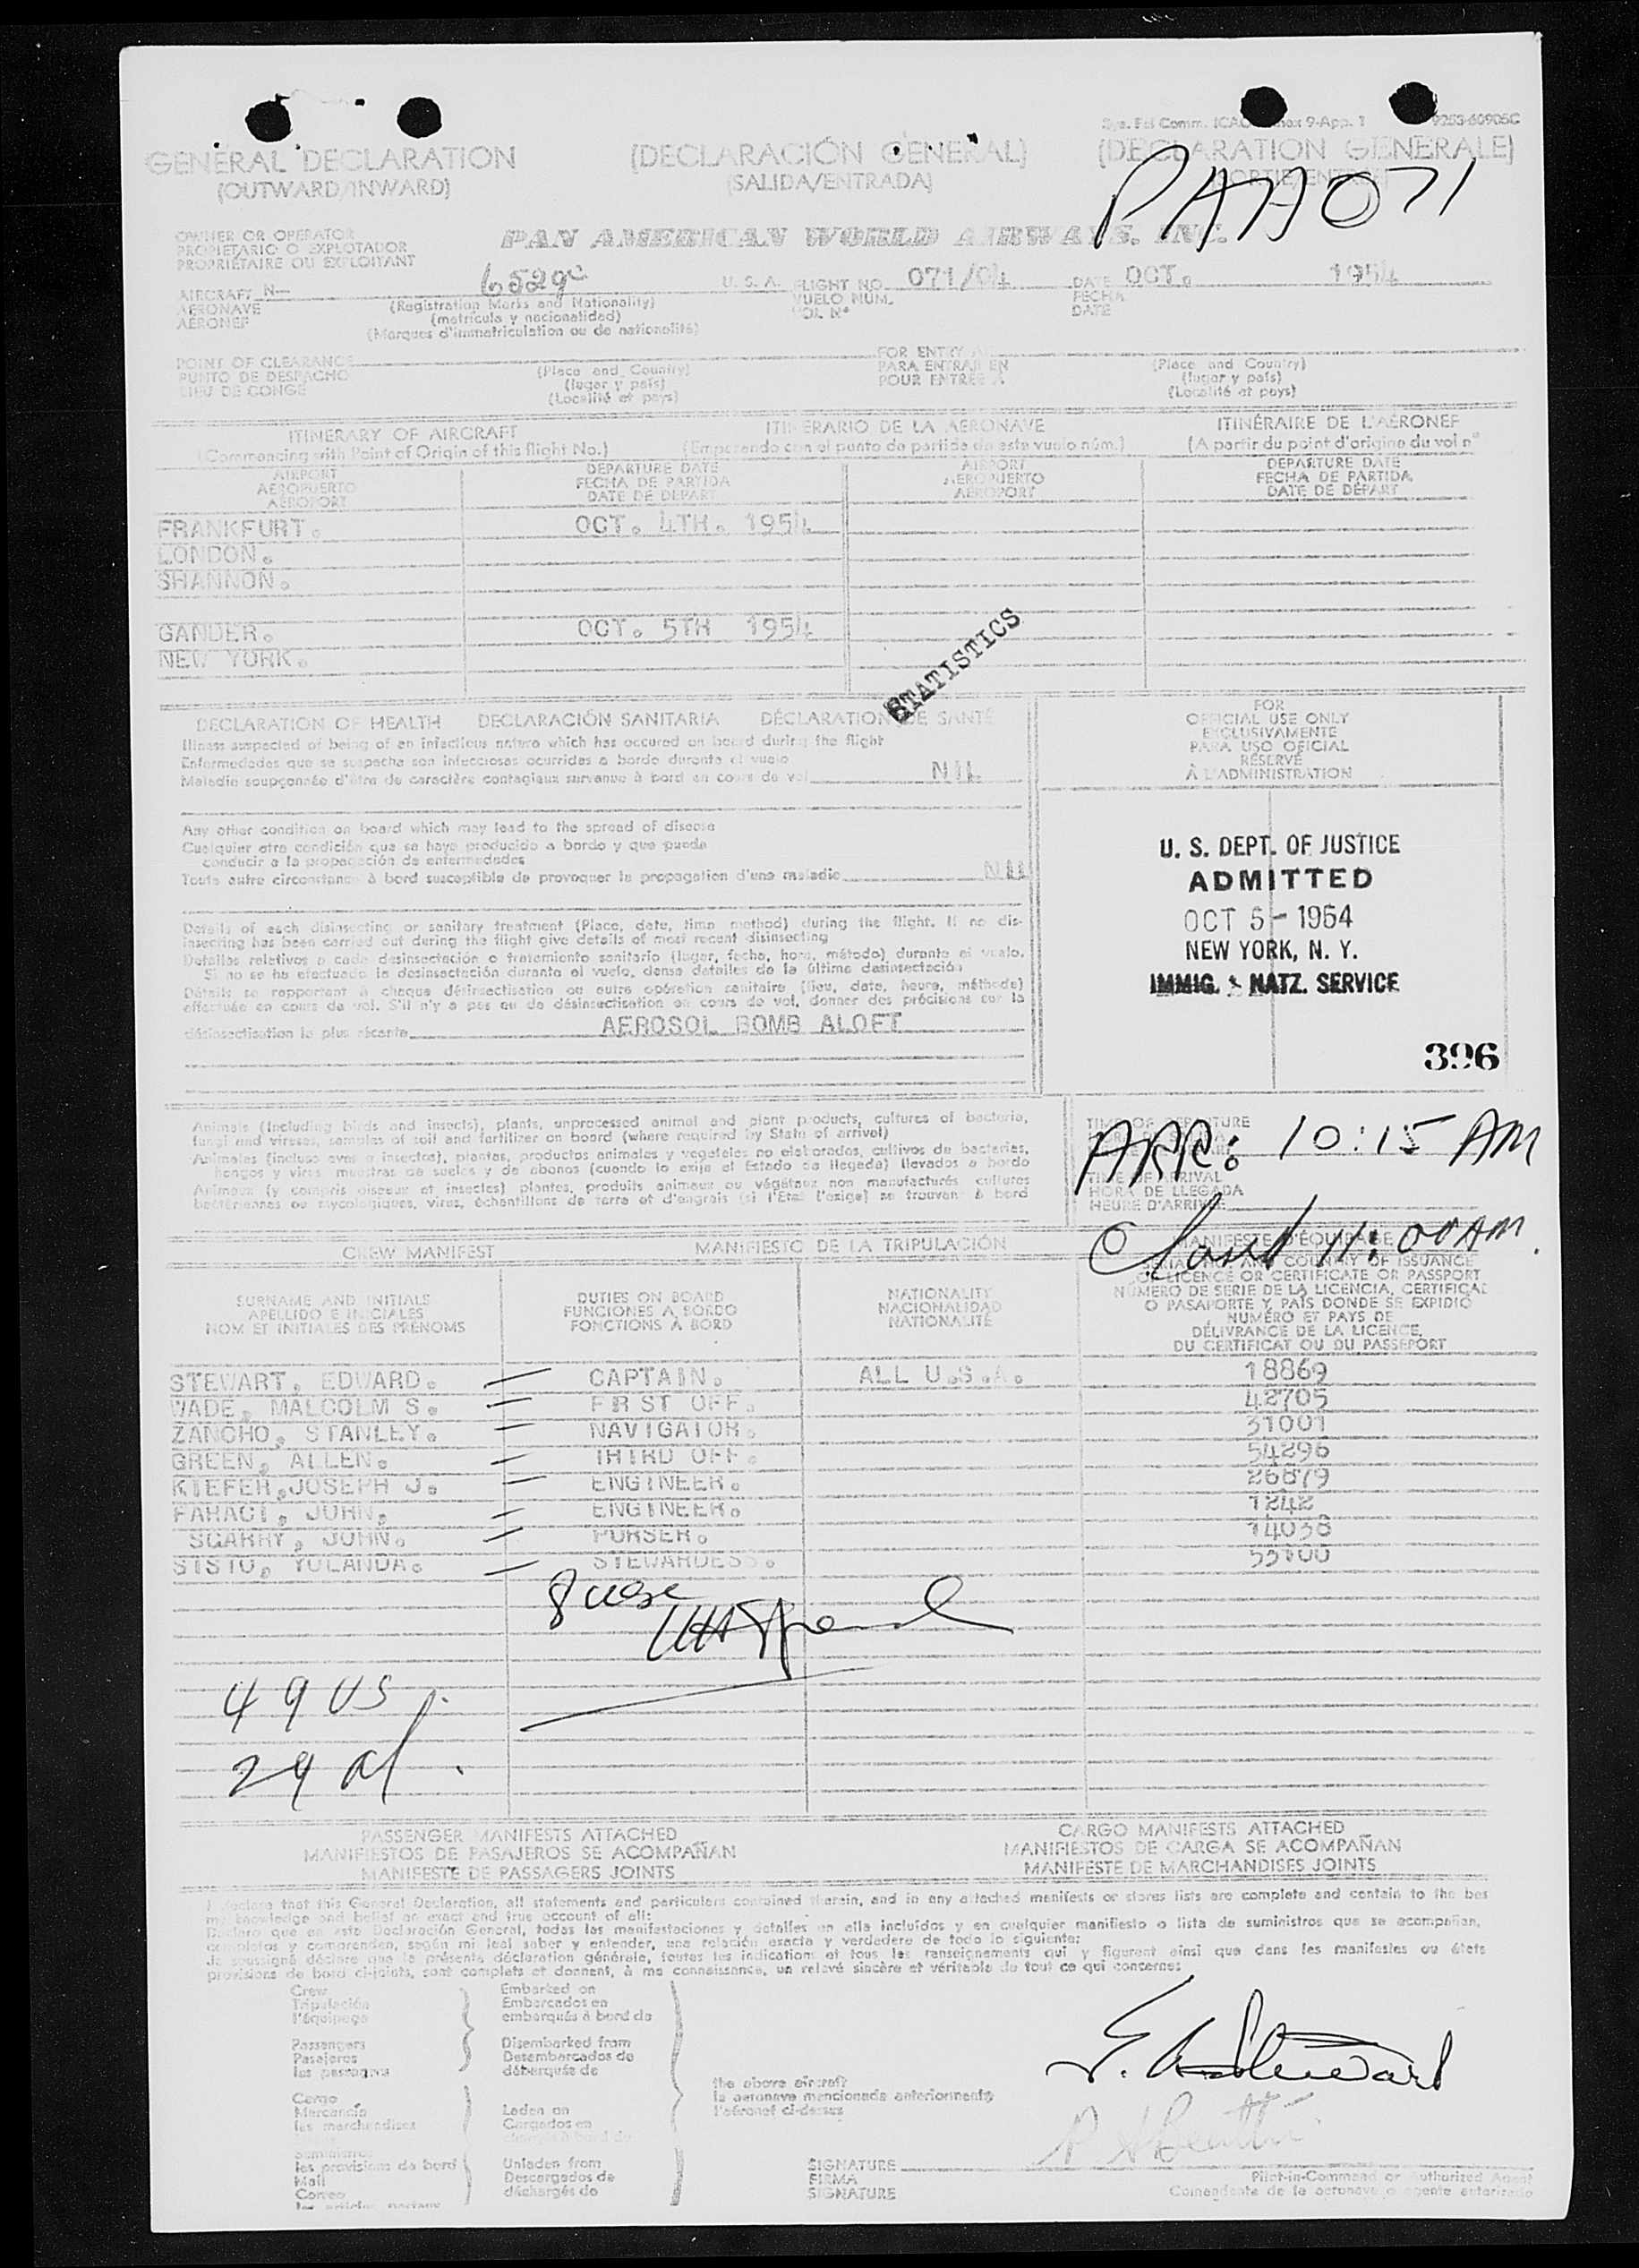 Sys. Fcl Comm. ICAO Annex 9-App. 1 9253-60905C
GENERAL DECLARATION (DECLARACIÓN GENERAL) (DECLARATION GENERALE)
(OUTWARD/INWARD) (SALIDA/ENTRADA) (SORTIE/ENTREE)
PAA071
OWNER OR OPERATOR
PROPIETARIO O EXPLOTADOR
PROPRIÉTAIRE OU EXPLOITANT
PAN AMERICAN WORLD AIRWAYS, INC.
AIRCRAFT N— 6529C U. S. A. FLIGHT NO. 071/04 DATE OCT. 1954
AERONAVE (Registration Marks and Nationality) VUELO NUM. FECHA
AÉRONEF (matrícula y nacionalidad) VOL Nº DATE
(Marques d'immatriculation ou de nationalité)
POINT OF CLEARANCE (Place and Country) FOR ENTRY AT (Place and Country)
PUNTO DE DESPACHO (lugar y país) PARA ENTRAR EN (lugar y país)
LIEU DE CONGÉ (Localité et pays) POUR ENTRÉE À (Localité et pays)
ITINERARY OF AIRCRAFT ITINERARIO DE LA AERONAVE ITINÉRAIRE DE L'AÉRONEF
(Commencing with Point of Origin of this flight No.) (Empezando con el punto de partida de este vuelo núm.) (A partir du point d'origine du vol nº
AIRPORT DEPARTURE DATE AIRPORT DEPARTURE DATE
AEROPUERTO FECHA DE PARTIDA AEROPUERTO FECHA DE PARTIDA
AÉROPORT DATE DE DÉPART AÉROPORT DATE DE DÉPART
FRANKFURT. OCT. 4TH. 1954
LONDON.
SHANNON.
GANDER. OCT. 5TH 1954
NEW YORK.
STATISTICS
DECLARATION OF HEALTH DECLARACIÓN SANITARIA DÉCLARATION DE SANTÉ
Illness suspected of being of an infectious nature which has occured on board during the flight
Enfermedades que se sospecha son infecciosas ocurridas a bordo durante el vuelo
Maladie soupçonnée d'être de caractère contagieux survenue à bord au cours de vol NIL
Any other condition on board which may lead to the spread of disease
Cualquier otra condición que se haya producido a bordo y que pueda
conducir a la propagación de enfermedades
Toute autre circonstance à bord susceptible de provoquer la propagation d'une maladie NIL
Details of each disinsecting or sanitary treatment (Place, date, time method) during the flight. If no dis-
insecting has been carried out during the flight give details of most recent disinsecting
Detalles relativos a cada desinsectación o tratamiento sanitario (lugar, fecha, hora, método) durante el vuelo.
Si no se ha efectuado la desinsectación durante el vuelo, dense detalles de la última desinsectación
Détails se rapportant à chaque désinsectisation ou autre opération sanitaire (lieu, date, heure, méthode)
effectuée en cours de vol. S'il n'y a pas eu de désinsectisation en cours de vol, donner des précisions sur la
désinsectisation la plus récente AEROSOL BOMB ALOFT
FOR
OFFICIAL USE ONLY
EXCLUSIVAMENTE
PARA USO OFICIAL
RÉSERVÉ
À L'ADMINISTRATION
U. S. DEPT. OF JUSTICE
ADMITTED
OCT 5 - 1954
NEW YORK, N. Y.
IMMIG. & NATZ. SERVICE
396
Animals (including birds and insects), plants, unprocessed animal and plant products, cultures of bacteria,
fungi and viruses, samples of soil and fertilizer on board (where required by State of arrival)
Animales (incluso aves e insectos), plantas, productos animales y vegetales no elaborados, cultivos de bacterias,
hongos y virus muestras de suelos y de abonos (cuando lo exija el Estado de llegada) llevados a bordo
Animaux (y compris oiseaux et insectes) plantes, produits animaux ou végétaux non manufacturés cultures
bactériennes ou mycologiques, virus, échantillons de terre et d'engrais (si l'État l'exige) se trouvant à bord
TIME OF DEPARTURE
ARR: 10:15 AM
TIME OF ARRIVAL
HORA DE LLEGADA
HEURE D'ARRIVÉE
Closed 11:00 AM.
CREW MANIFEST MANIFIESTO DE LA TRIPULACIÓN MANIFESTE D'ÉQUIPAGE
SURNAME AND INITIALS DUTIES ON BOARD NATIONALITY SERIAL NO. AND COUNTRY OF ISSUANCE
APELLIDO E INICIALES FUNCIONES A BORDO NACIONALIDAD OF LICENCE OR CERTIFICATE OR PASSPORT
NOM ET INITIALES DES PRÉNOMS FONCTIONS À BORD NATIONALITÉ NÚMERO DE SERIE DE LA LICENCIA, CERTIFICAD
O PASAPORTE Y PAÍS DONDE SE EXPIDIÓ
NUMÉRO ET PAYS DE
DÉLIVRANCE DE LA LICENCE,
DU CERTIFICAT OU DU PASSEPORT
STEWART, EDWARD. CAPTAIN. ALL U.S.A. 18869
WADE, MALCOLM S. FRST OFF. 42705
ZANCHO, STANLEY. NAVIGATOR. 31001
GREEN, ALLEN. THIRD OFF. 54296
KIEFER, JOSEPH J. ENGINEER. 26879
FARACI, JOHN. ENGINEER. 1242
SCARRY, JOHN. PURSER. 14038
SISTO, YOLANDA. STEWARDESS. 55100
49 US
29 al.
PASSENGER MANIFESTS ATTACHED CARGO MANIFESTS ATTACHED
MANIFIESTOS DE PASAJEROS SE ACOMPAÑAN MANIFIESTOS DE CARGA SE ACOMPAÑAN
MANIFESTE DE PASSAGERS JOINTS MANIFESTE DE MARCHANDISES JOINTS
I declare that this General Declaration, all statements and particulars contained therein, and in any attached manifests or stores lists are complete and contain to the bes
my knowledge and belief an exact and true account of all:
Declaro que en esta Declaración General, todas las manifestaciones y detalles en ella incluídos y en cualquier manifiesto o lista de suministros que se acompañan,
completos y comprenden, según mi leal saber y entender, una relación exacta y verdadera de todo lo siguiente:
Je soussigné déclare que la présente déclaration générale, toutes les indications et tous les renseignements qui y figurent ainsi que dans les manifestes ou états
provisions de bord ci-joints, sont complets et donnent, à ma connaissance, un relevé sincère et véritable de tout ce qui concerne:
Crew Embarked on
Tripulación Embarcados en
l'équipage embarqués à bord de
Passengers Disembarked from
Pasajeros Desembarcados de
les passagers débarqués de
the above aircraft
la aeronave mencionada anteriormente
l'aéronef ci-dessus
Cargo Laden on
Mercancía Cargados en
les marchandises
E. A. Stewart
les provisions de bord Unladen from
Mail Descargados de
Correo déchargés de
SIGNATURE Pilot-in-Command or Authorized Agent
FIRMA Comandante de la aeronave o agente autorizado
SIGNATURE